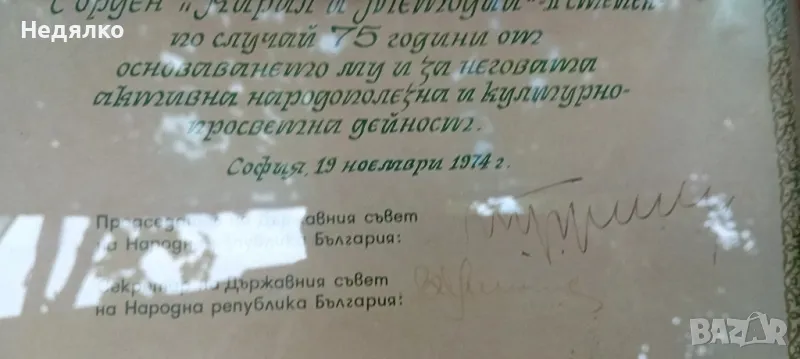 Недялко
с орден „Кирил и Методий“ - II степен
по случай 75 години от
основаването му и за неговата
активна народополезна и културно-
просветна дейност.
София, 19 ноември 1974 г.
Председател на Държавния съвет
на Народна република България:
Секретар на Държавния съвет
на Народна република България:
BAZAR.bg